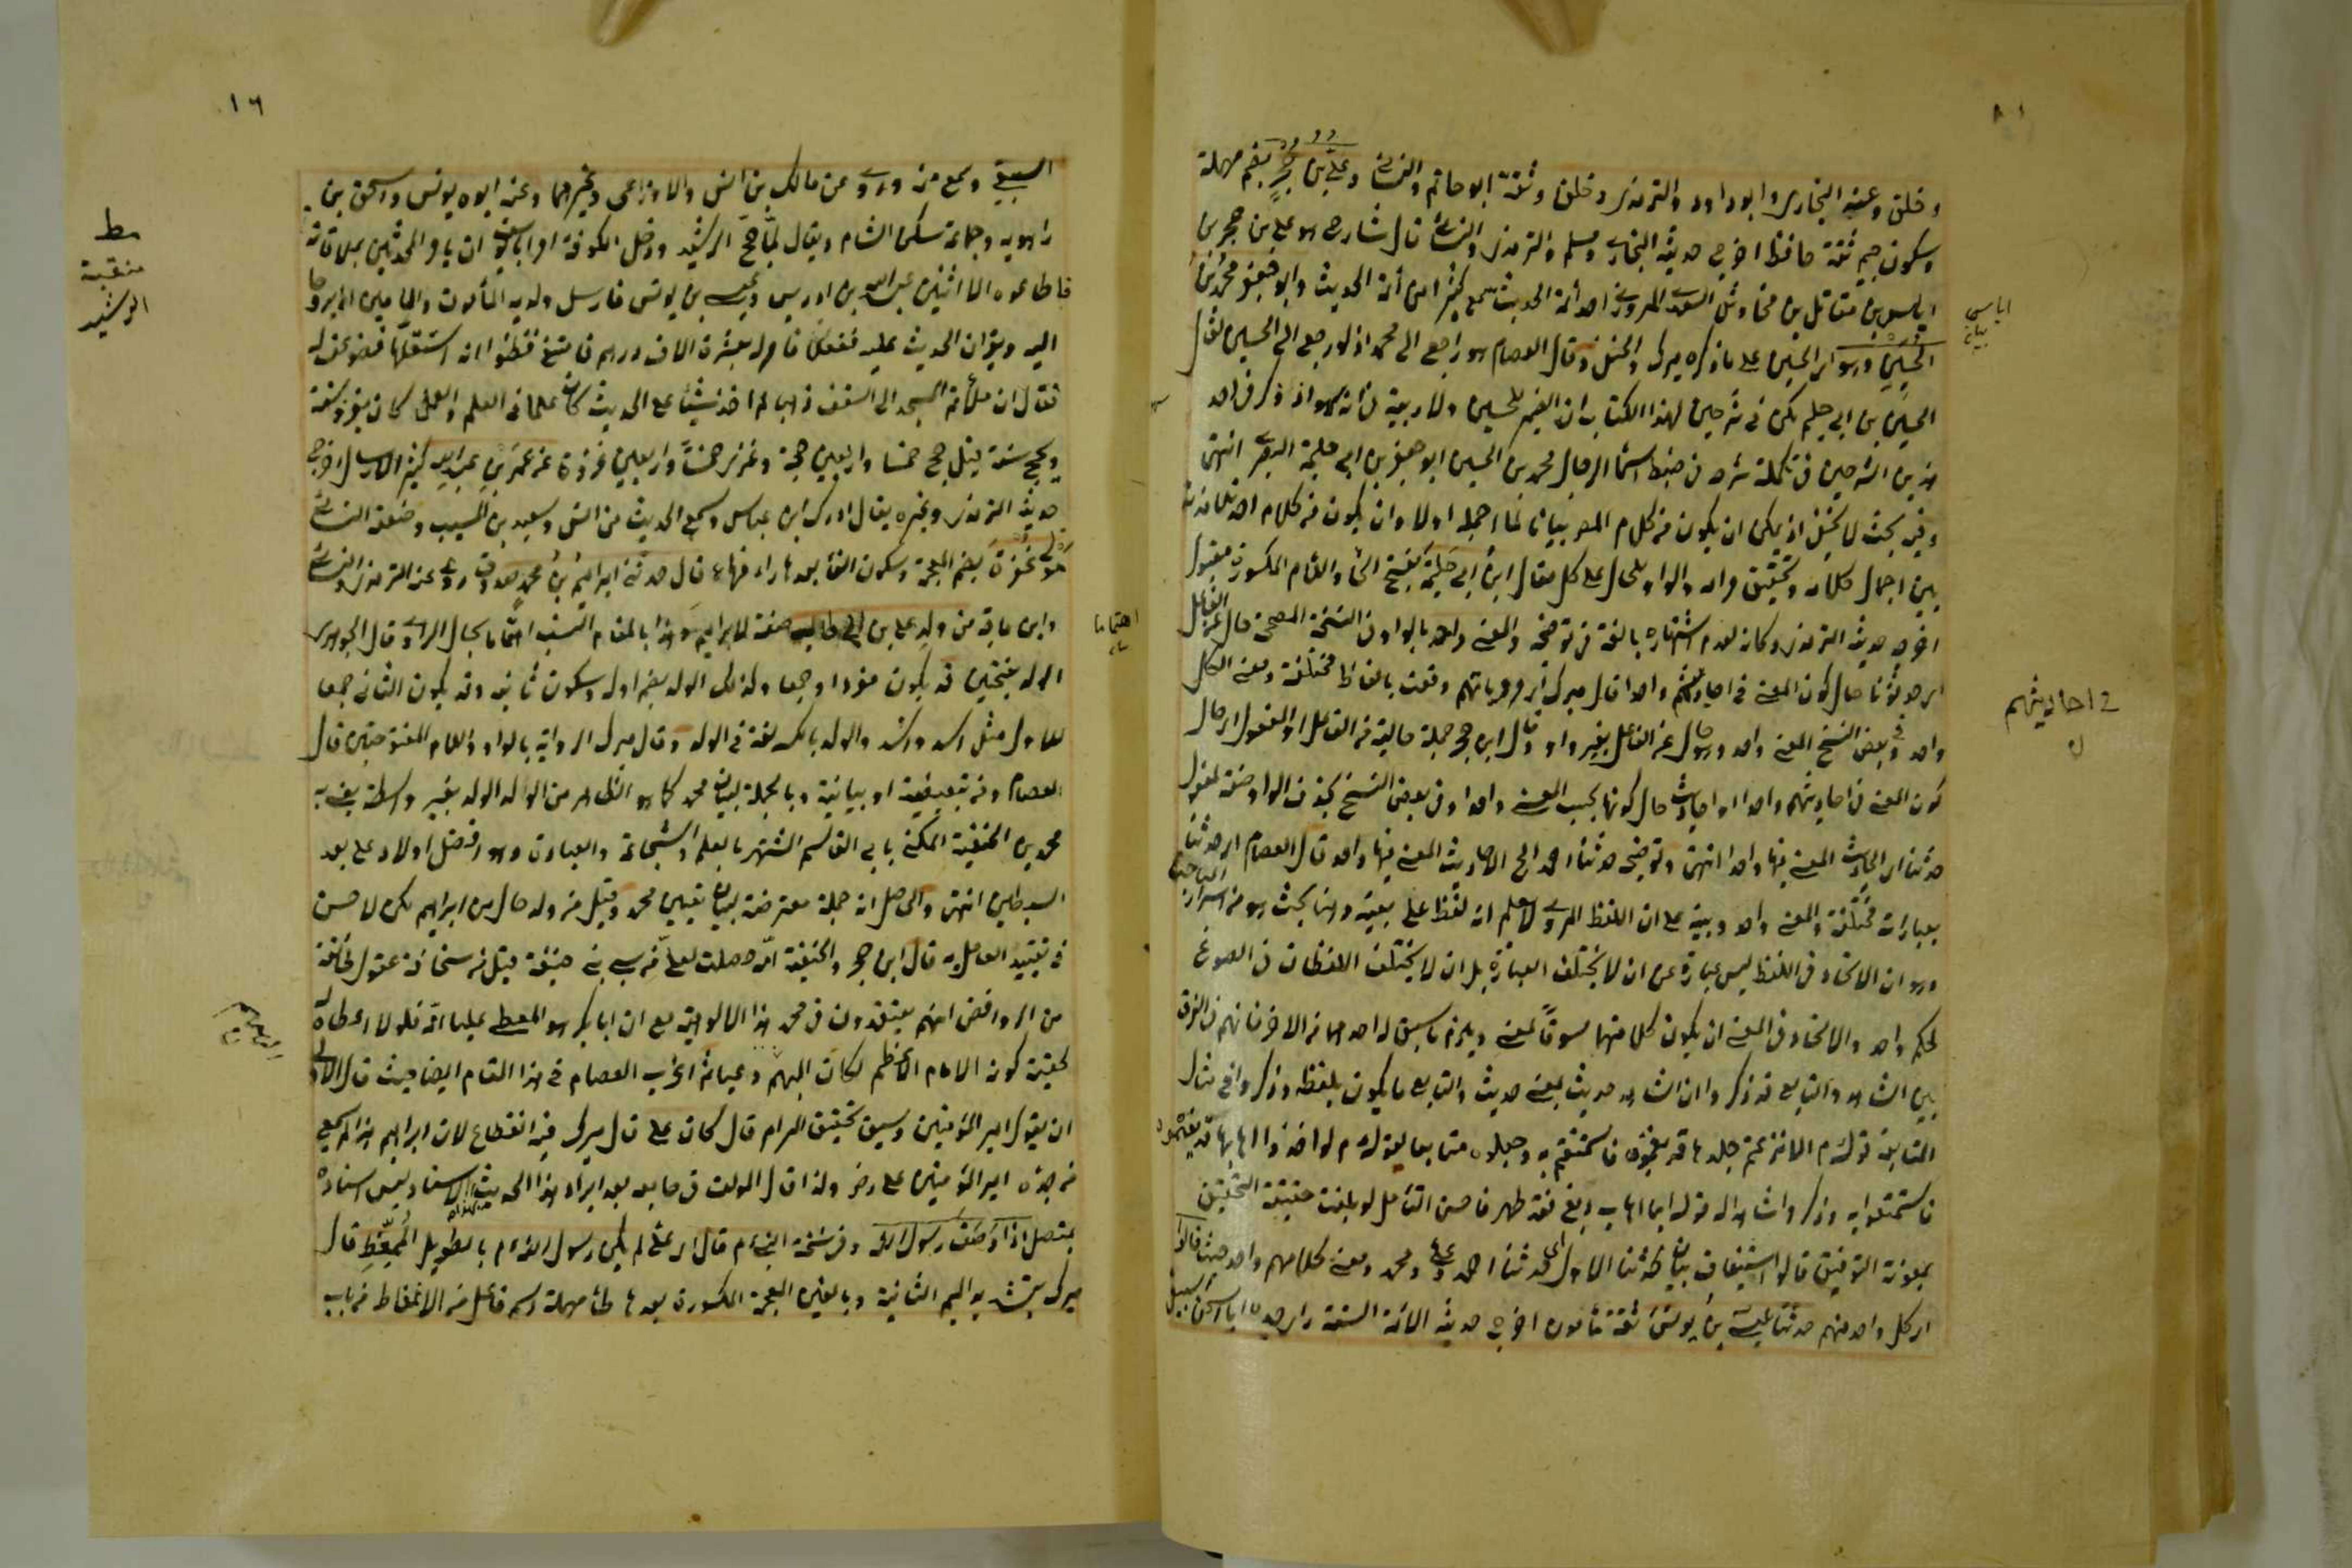 وخلق وعنه البخاري وابو داود والترمذي وخلق وثقه ابو حاتم والنسائي وعلي بن حجر بضم مهملة
وسكون جيم ثقة حافظ اخرج حديثه البخاري ومسلم والترمذي والنسائي قال شارح هو علي بن حجر بن
اياس بن مقاتل بن السعدي المروزي احد أئمة الحديث سمع كثيرا من أئمة الحديث وابو جعفر محمد بن
الحسين وهو ابن الحسين على ما ذكره ميرك والحنفي وقال العصام هو راجع الى محمد اذ لو رجع الى الحسين لقال
الحسين بن ابي حليمة لكن في شرحين لهذا الكتاب ان الضمير للحسين ولا ريبة في انه سهو اذ ذكر في احد
هذين الشرحين في تكملة شرحه في ضبط اسماء الرجال محمد بن الحسين ابو جعفر بن ابي حليمة البصري انتهى
وفيه بحث لا يخفى اذ يمكن ان يكون من كلام المص بيانا لما اجمله اولا وان يكون من كلام احد تلامذته
يبين اجمال كلامه وتحقيق مرامه والواو للحال على كل مقال ابن ابي حليمة بفتح الحاء واللام المكسورة مقبول
اخرج حديثه الترمذي وكانه لعدم اشتهاره بالغه في توضيحه والمعنى واحد بالواو في النسخة المصححة حال عن الفاعل
اي حدثونا حال كون المعنى في احاديثهم واحدا قال ميرك اي مروياتهم وقعت بالفاظ مختلفة ومعنى الكل
واحد وفي بعض النسخ المعنى واحد وهو حال عن الفاعل بغير واو وقال ابن حجر جملة حالية من الفاعل او المفعول اي حال
كون المعنى في احاديثهم واحدا او احاديث حال كونها بحسب المعنى واحدا وفي بعض النسخ بحذف الواو صفة لمفعول
حدثنا اي احاديث المعنى فيها واحد انتهى وتوضيحه حدثنا احمد الخ الاحاديث المعنى فيها واحد قال العصام اي حدثنا
بعبارات مختلفة والمعنى واحد وبنية على ان اللفظ المروي لا يعلم انه لفظ على بعينه وهنا بحث هو من اسرار المباحث
وهو ان الاتحاد في اللفظ ليس عبارة عن ان لا يختلف العبارة بل ان لا يختلف اللفظان في الصوغ
لحكم واحد والاتحاد في المعنى ان يكون كلا منهما مسوقا لمعنى ويلزم ما سيق له احدهما من الاخر فانهم في الفرق
بين الشاهد والتابع قد ذكروا ان الشاهد حديث بمعنى حديث والتابع ما يكون بلفظه وذكروا في مثال
المتابعة قوله م الا نزعتم جلدها فدبغتموه فاستمتعتم به وجعلوه متابعا لقوله م لو اخذوا اهابها فدبغتموه
فاستمتعوا به وذكروا شاهدا له قوله ايما اهاب دبغ فقد طهر فاحسن التأمل لو بلغت حقيقة التحقيق
بمعونة التوفيق قالوا استيناف بيان لحدثنا الاول اي حدثنا احمد وعلي ومحمد ومعنى كلامهم واحد حيث قالوا
اي كل واحد منهم حدثنا عيسى بن يونس ثقة مأمون اخرج حديثه الائمة الستة رأى جده ابا اسحق السبيعي
اياس
بيانه
في احاديثهم
١٦
السبيعي وسمع منه وروى عن مالك بن انس والاوزاعي وغيرهما وعنه ابوه يونس واسحق بن
راهويه وجماعة سكن الشام ويقال لما حج الرشيد ودخل الكوفة امر ابا يوسف ان يأمر المحدثين بملاقاته
فاطاعوه الا اثنين عبد الله بن ادريس وعيسى بن يونس فارسل ولديه المأمون والامين اليهما وجاءا
اليه ويقرآن الحديث عليه ففعلا فامر له بعشرة الاف درهم فامتنع فظنوا انه استقلها فضوعف له
فقال ان ملأتم المسجد الى السقف ذهبا لم اخذ شيئا على الحديث كان علما في العلم والعمل كان يغزو سنة
ويحج سنة قيل حج خمسا واربعين حجة وغزى خمسا واربعين غزوة عن عمر بن عبد الله كثير الارسال اخرج
حديثه الترمذي وغيره يقال ادرك ابن عباس وسمع الحديث من انس وسعيد بن المسيب وضعفه النسائي
مولى غفرة بضم المعجمة وسكون الفاء بعدها راء فهاء قال حدثني ابراهيم بن محمد صدوق روى عنه الترمذي والنسائي
وابن ماجة من ولد علي بن ابي طالب صفة لابراهيم وهذا بالمقام انسب اهتماما بحال الراوي وقال الجوهري
الولد بفتحتين قد يكون مفردا وجمعا وكذلك الولد بضم اوله وسكون ثانيه وقد يكون الثاني جمعا
للاول مثل اسد واسد والولد بالكسر لغة في الولد وقال ميرك الرواية بالواو واللام المفتوحتين قال
العصام ومن تبعيضية او بيانية وبالجملة لبيان محمد كما هو الظاهر من الولد الولد بغير واسطة يعني به
محمد بن الحنفية المكنى بابي القاسم اشتهر بالعلم والشجاعة والعبادة وهو افضل اولاد علي بعد
السبطين انتهى والحاصل انه جملة معترضة لبيان تعيين محمد وقيل من ولد حال من ابراهيم لكن لا حسن
في تقييد العامل به قال ابن حجر والحنفية امه وصلت لعلي من سبي بني حنيفة قيل من سخافة عقول طائفة
من الروافض انهم يعتقدون في محمد هذا الالوهية مع ان ابا بكر هو المعطي عليا امه فلولا اعطائه
لحقية كونه الامام الاعظم لكان البهم دعيا ثم اغرب العصام في هذا المقام ايضا حيث قال الاولى
ان يقول امير المؤمنين وسبق تحقيق المرام قال كان علي قال ميرك فيه انقطاع لان ابراهيم هذا لم يسمع
من جده امير المؤمنين علي رض ولذا قال المولف في جامعه بعد ايراد هذا الحديث بهذا الاسناد ليس اسناده
بمتصل اذا وصف رسول الله وفي نسخة النبي م قال اي علي لم يكن رسول الله م بالطويل الممغط قال
ميرك بتشديد الميم الثانية وبالغين المعجمة المكسورة بعدها طاء مهملة اسم فاعل من الانمغاط من باب
مط
منقبة
الرشيد
اهتماما